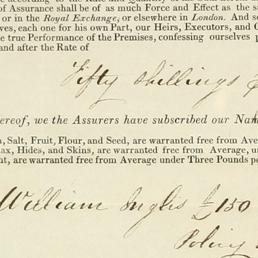 of Assurance shall be of as much Force and Effect as the s
or in the Royal Exchange, or elsewhere in London. And so
lves, each one for his own Part, our Heirs, Executors, and G
e true Performance of the Premises, confessing ourselves p
and after the Rate of
Fifty Shillings
ereof, we the Assurers have subscribed our Nam
n, Salt, Fruit, Flour, and Seed, are warranted free from Avera
ax, Hides, and Skins, are warranted free from Average, un
nt, are warranted free from Average under Three Pounds p
William Inglis £150
Policy